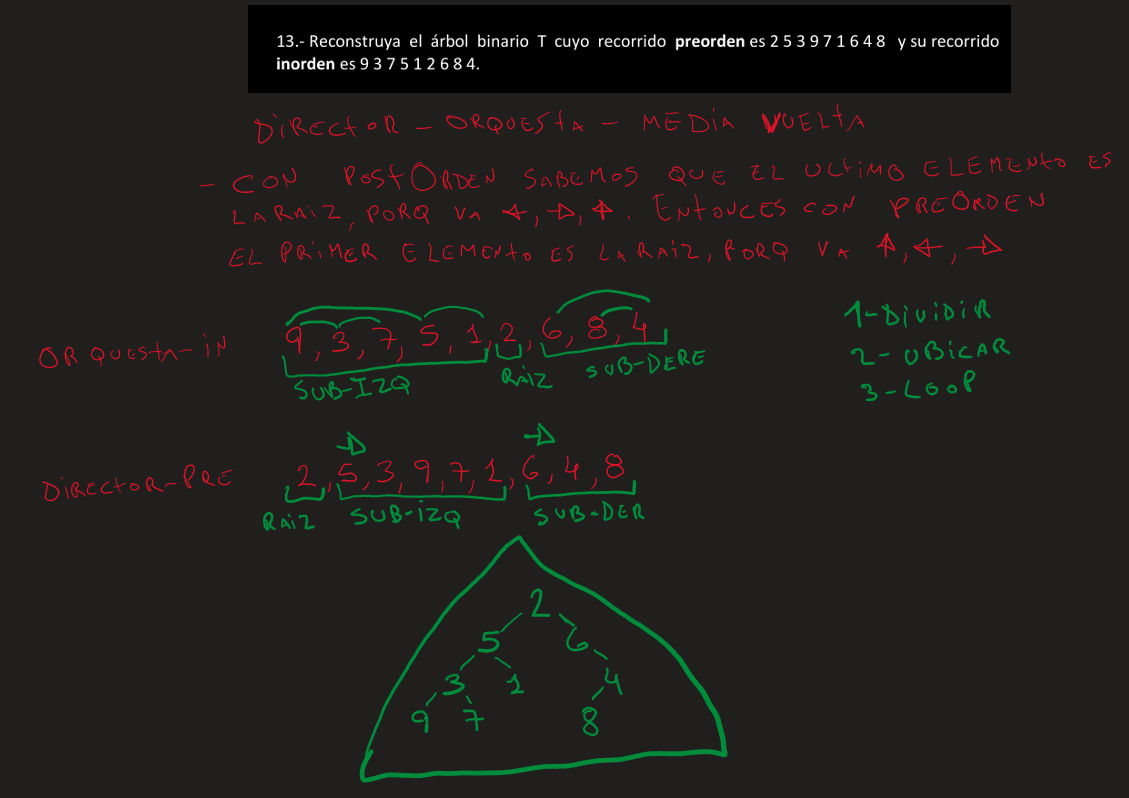 13.- Reconstruya el árbol binario T cuyo recorrido preorden es 2 5 3 9 7 1 6 4 8 y su recorrido
inorden es 9 3 7 5 1 2 6 8 4.
DIRECTOR - ORQUESTA - MEDIA VUELTA
- CON POSTORDEN SABEMOS QUE EL ULTIMO ELEMENTO ES
LA RAIZ, PORQ VA ←, →, ↑. ENTONCES CON PREORDEN
EL PRIMER ELEMENTO ES LA RAIZ, PORQ VA ↑, ←, →
1-DIVIDIR
ORQUESTA-IN 9, 3, 7, 5, 1, 2, 6, 8, 4
2-UBICAR
SUB-IZQ RAIZ SUB-DERE
3-LOOP
→ →
DIRECTOR-PRE 2, 5, 3, 9, 7, 1, 6, 4, 8
RAIZ SUB-IZQ SUB-DER
2
5 6
3 1 4
9 7 8